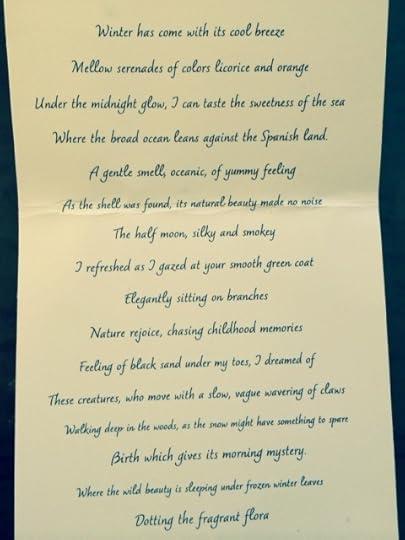 Winter has come with its cool breeze
Mellow serenades of colors licorice and orange
Under the midnight glow, I can taste the sweetness of the sea
Where the broad ocean leans against the Spanish land.
A gentle smell, oceanic, of yummy feeling
As the shell was found, its natural beauty made no noise
The half moon, silky and smokey
I refreshed as I gazed at your smooth green coat
Elegantly sitting on branches
Nature rejoice, chasing childhood memories
Feeling of black sand under my toes, I dreamed of
These creatures, who move with a slow, vague wavering of claws
Walking deep in the woods, as the snow might have something to spare
Birth which gives its morning mystery.
Where the wild beauty is sleeping under frozen winter leaves
Dotting the fragrant flora